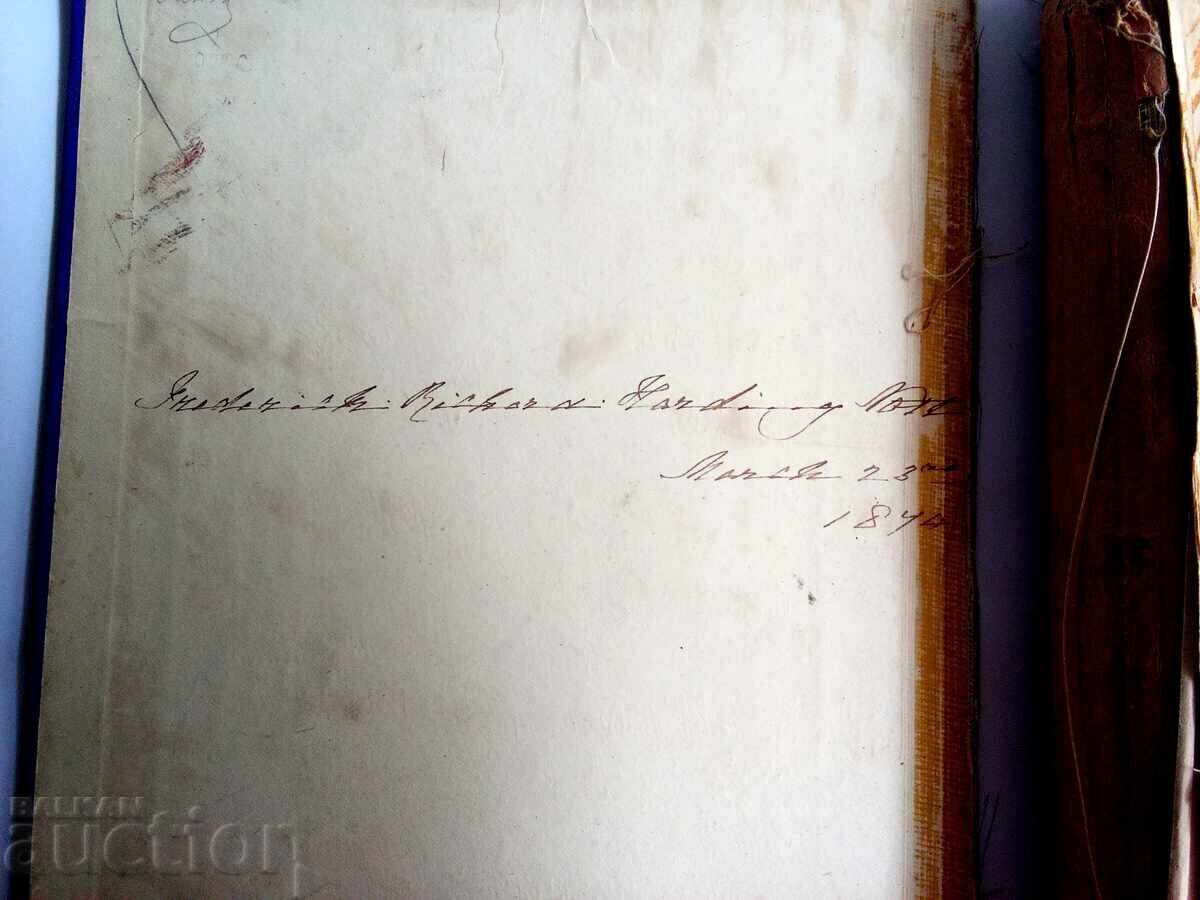 Frederick Richard Harding Nott
March 23rd
1870
BALKAN
auction